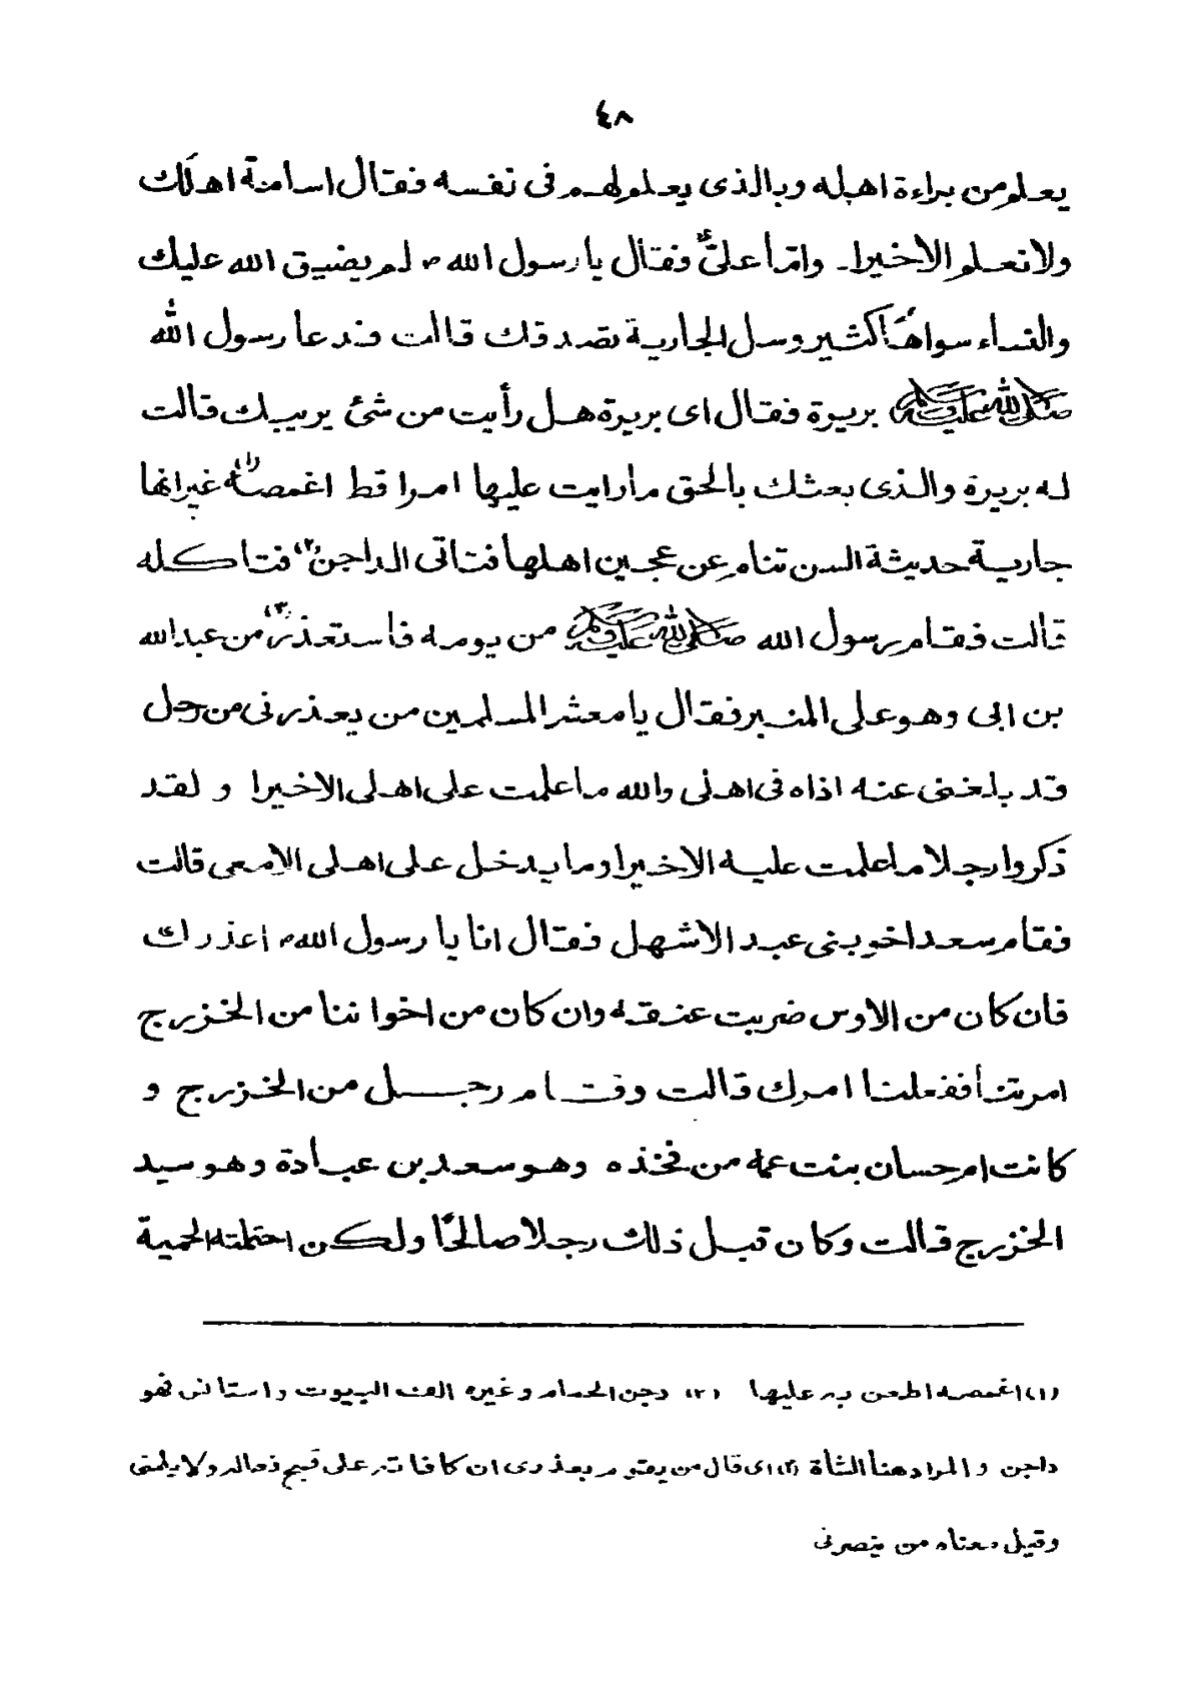 ٤٨
يعلم من براءة اهله وبالذى يعلم لهم فى نفسه فقال اسامة اهلَك
ولا نعلم الا خيرا۔ وامّا علىٌّ فقال يا رسول الله ؐ لم يضيق الله عليك
والنساء سواهَا كثير وسل الجارية تصدقك قالت فدعا رسول الله
صلى الله عليه وسلم بريرة فقال اى بريرة هل رأيت من شئ يريبك قالت
له بريرة والذى بعثك بالحق ما رايت عليها امرا قط اغمصه(١) غير انها
جارية حديثة السن تنام عن عجين اهلها فتاتى الداجن(٢) فتاكله
قالت فقام رسول الله صلى الله عليه وسلم من يومه فاستعذر(٣) من عبدالله
بن ابى وهو على المنبر فقال يا معشر المسلمين من يعذرنى من رجل
قد بلغنى عنه اذاه فى اهلى والله ما علمت على اهلى الا خيرا و لقد
ذكروا رجلا ما علمت عليه الا خيرا وما يدخل على اهلى الا معى قالت
فقام سعد اخو بنى عبد الاشهل فقال انا يا رسول الله ؐ اعذرك
فان كان من الاوس ضربت عنقه وان كان من اخواننا من الخزرج
امرتنا ففعلنا امرك قالت وقام رجل من الخزرج و
كانت ام حسان بنت عمه من فخذه وهو سعد بن عبادة وهو سيد
الخزرج قالت وكان قبل ذلك رجلا صالحًا ولكن احتملته الحمية
(١) اغمصه اطعن به عليها (٢) دجن الحمام وغيره الف البيوت واستانس فهو
داجن والمراد هنا الشاة (٣) اى قال من يقوم بعذرى ان كافاته على قبيح فعاله ولا يلمنى
وقيل معناه من ينصرنى